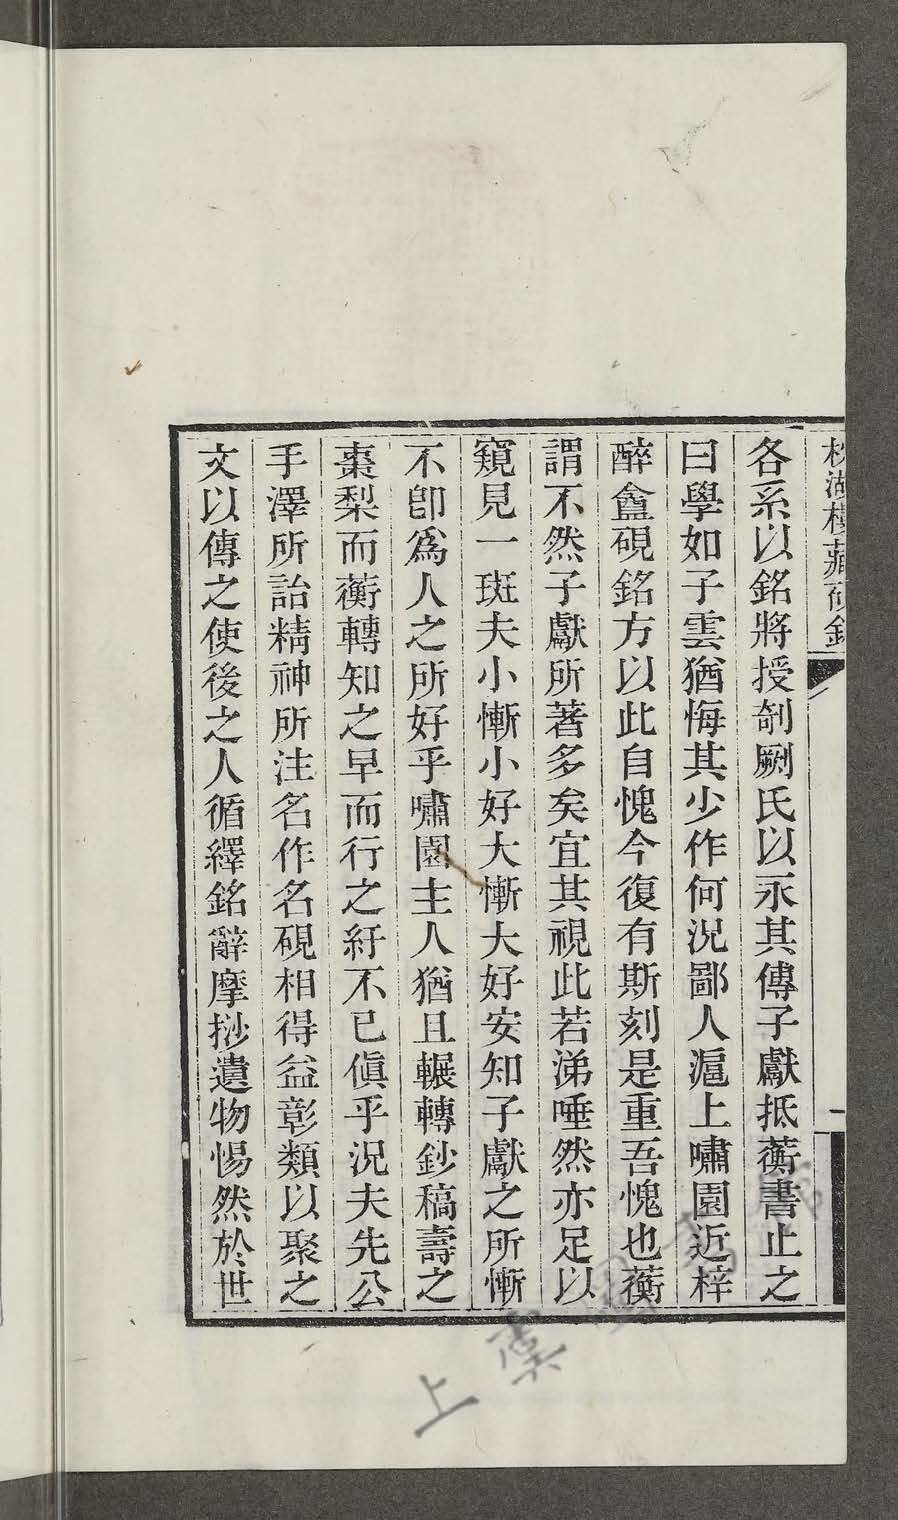 枚湖樓藏硯銘
一
各系以銘將授剞劂氏以永其傳子獻抵蘅書止之
曰學如子雲猶悔其少作何況鄙人滬上嘯園近梓
醉盦硯銘方以此自愧今復有斯刻是重吾愧也蘅
謂不然子獻所著多矣宜其視此若涕唾然亦足以
窺見一斑夫小慚小好大慚大好安知子獻之所慚
不卽爲人之所好乎嘯園主人猶且輾轉鈔稿壽之
棗梨而蘅轉知之早而行之紆不已傎乎況夫先公
手澤所詒精神所注名作名硯相得益彰類以聚之
文以傳之使後之人循繹銘辭摩挱遺物惕然於世
上虞圖書館